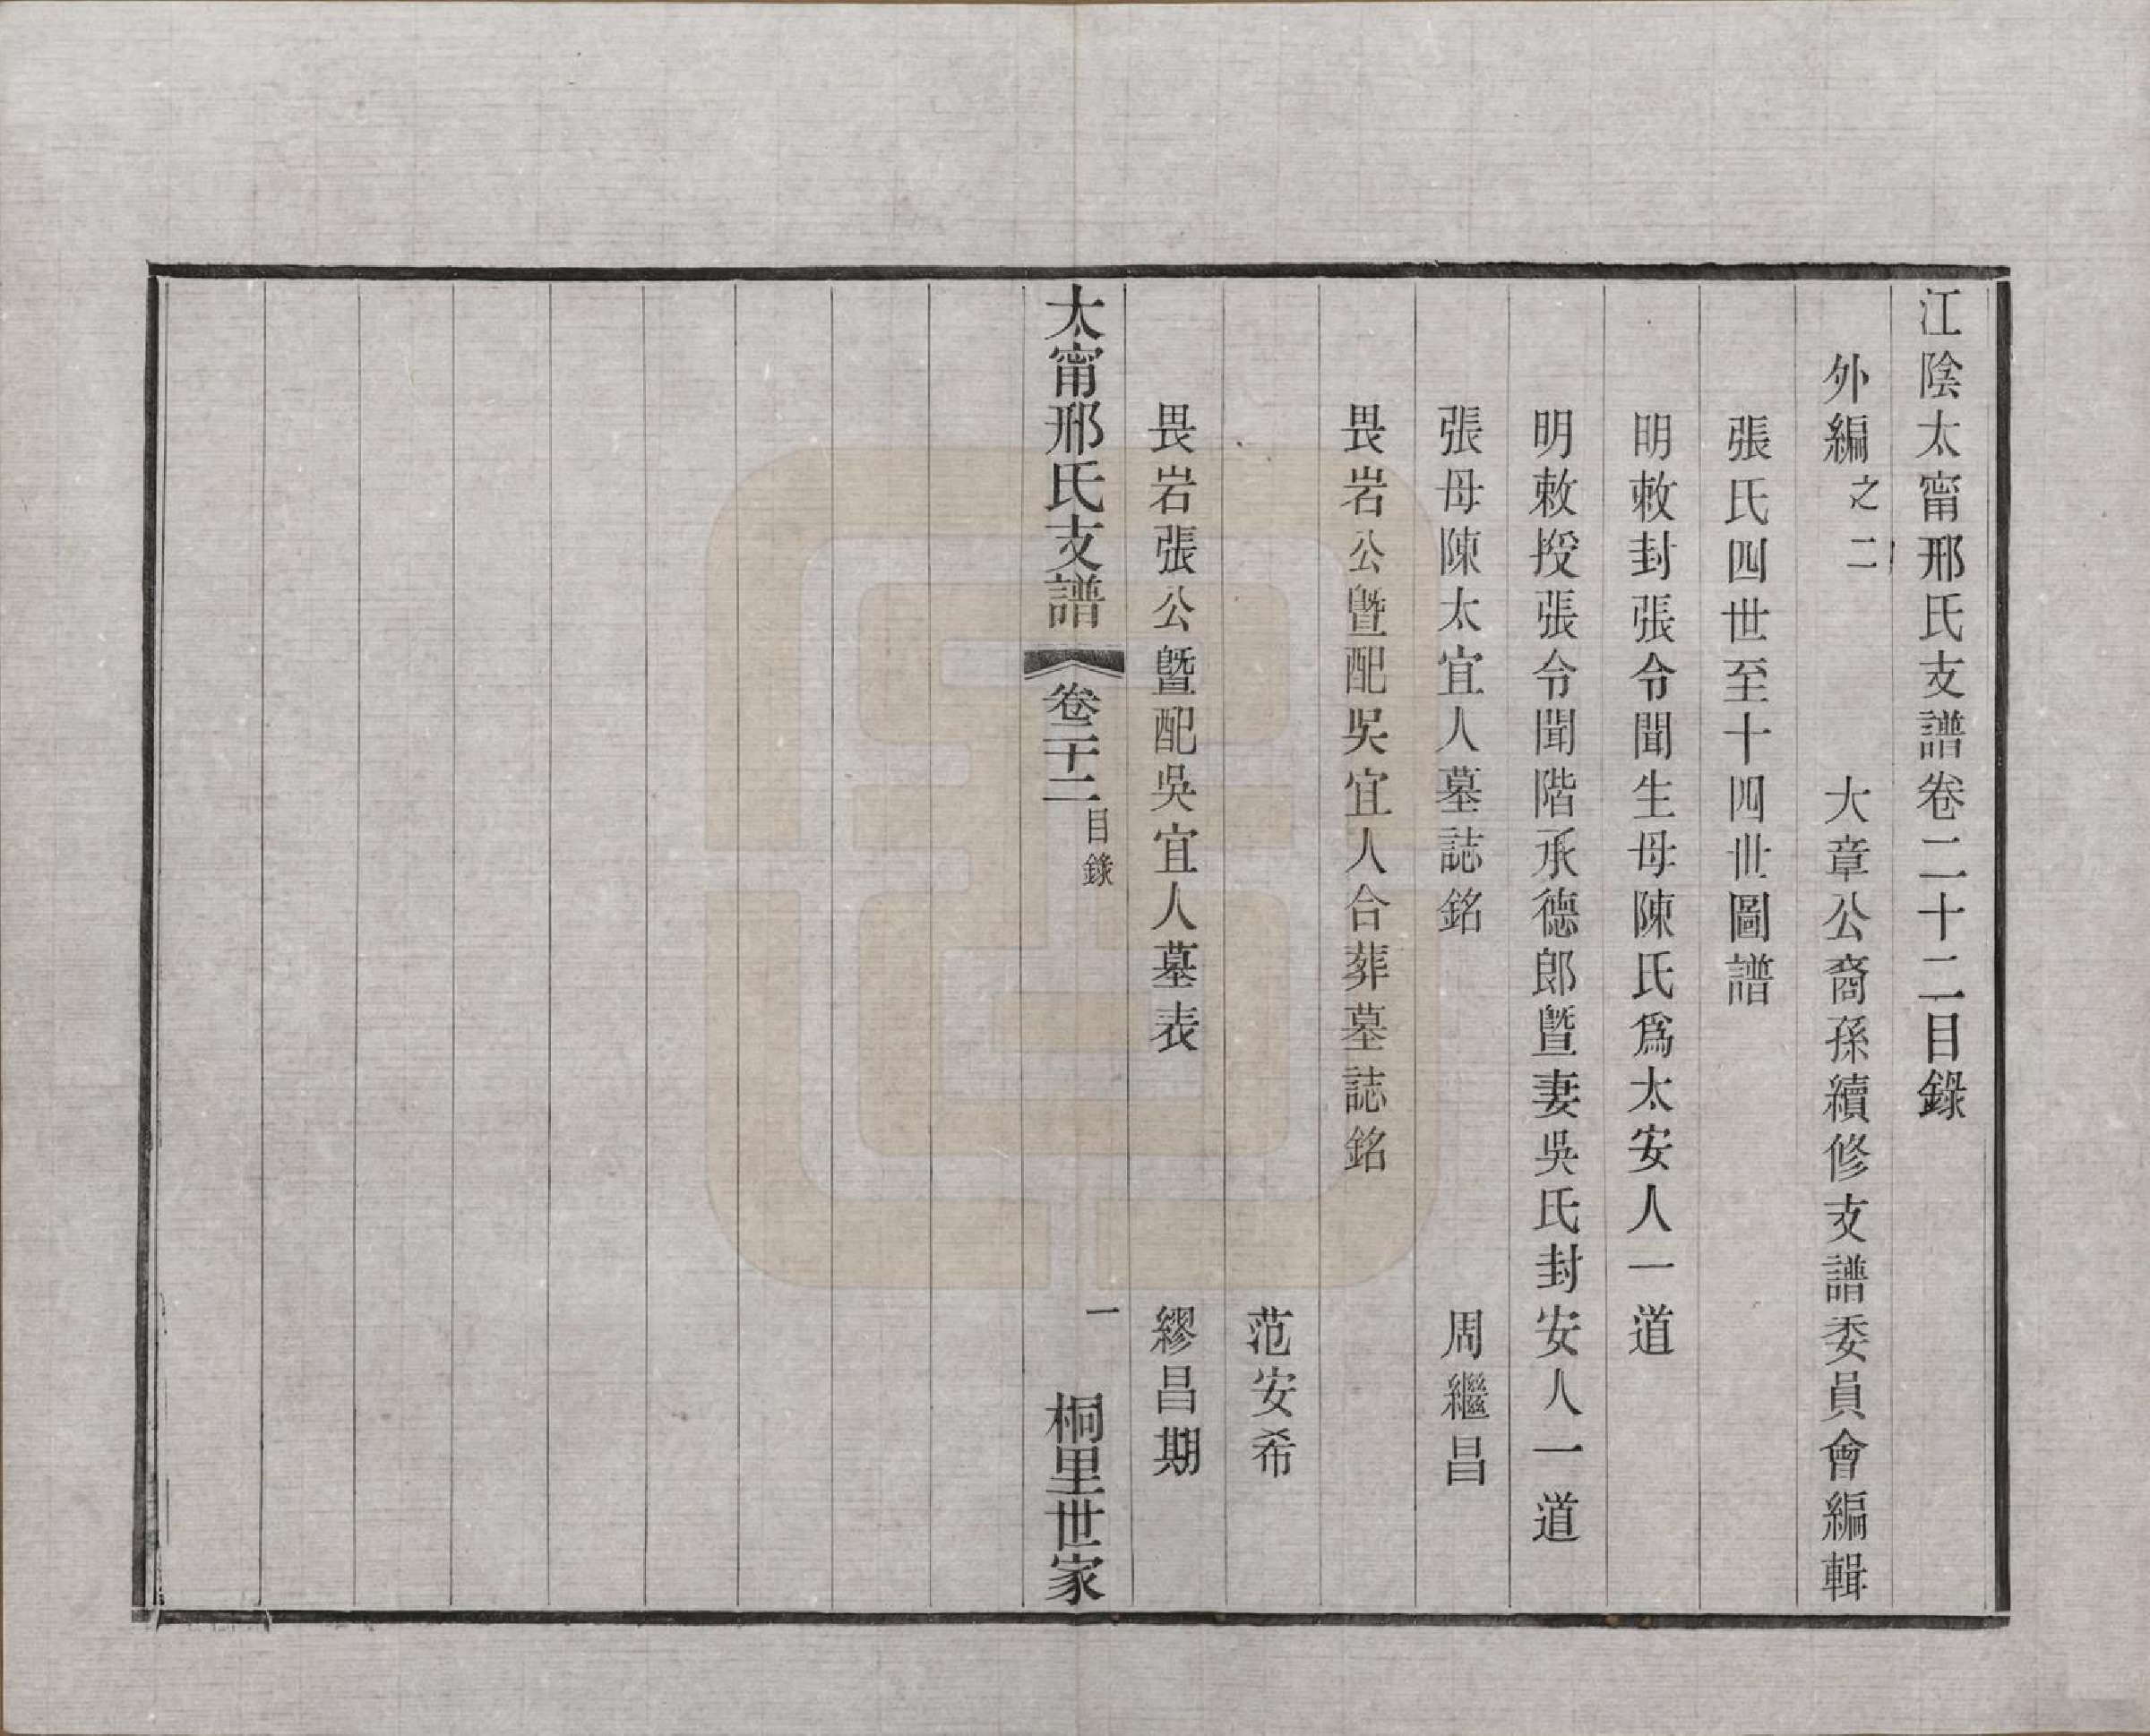 江陰太甯邢氏支譜卷二十二目錄
外編之二 大章公裔孫續修支譜委員會編輯
張氏四世至十四世圖譜
明敕封張令聞生母陳氏爲太安人一道
明敕授張令聞階承德郎暨妻吳氏封安人一道
張母陳太宜人墓誌銘 周繼昌
畏岩公暨配吳宜人合葬墓誌銘
范安希
畏岩張公暨配吳宜人墓表 繆昌期
太甯邢氏支譜 卷二十二 目錄 一 桐里世家